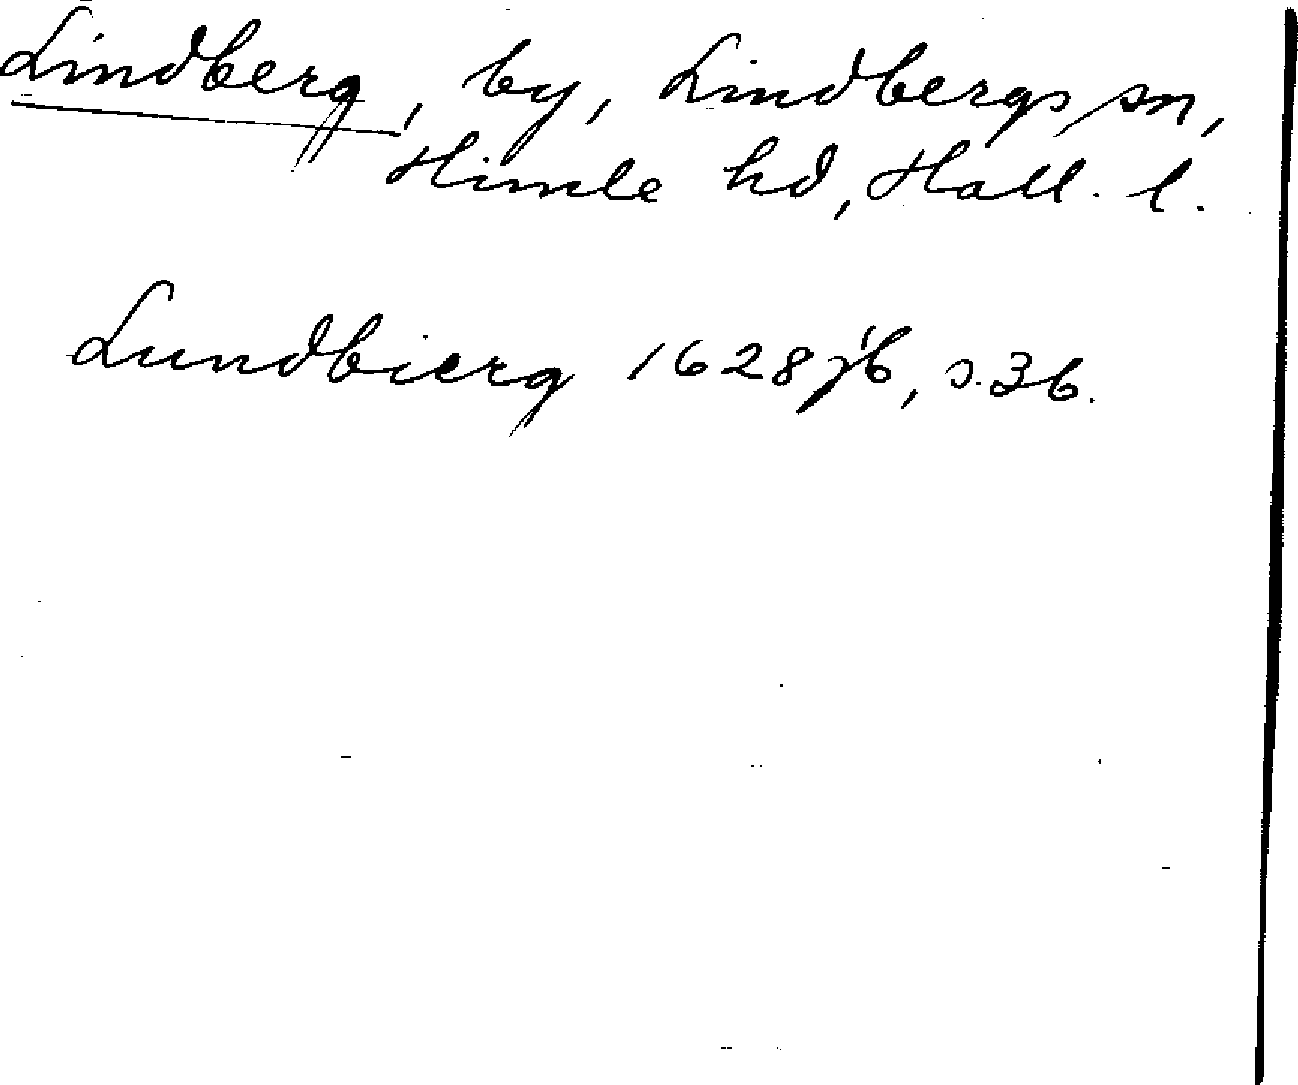 Lindberg, by, Lindbergs sn,
Himle hd, Hall. l.
Lundbierg 1628 jb, s. 36.